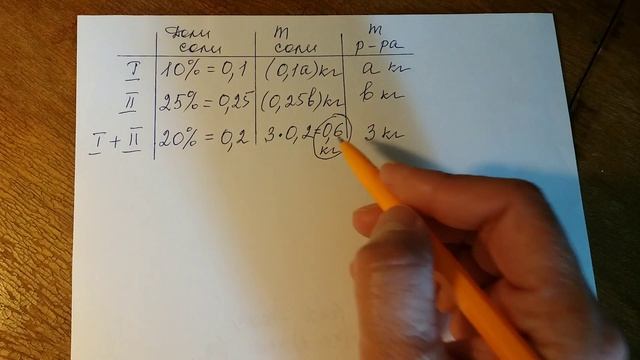 Доли соли | m соли | m р-ра
I | 10% = 0,1 | (0,1a)кг | a кг
II | 25% = 0,25 | (0,25b)кг | b кг
I + II | 20% = 0,2 | 3·0,2=0,6 кг | 3 кг